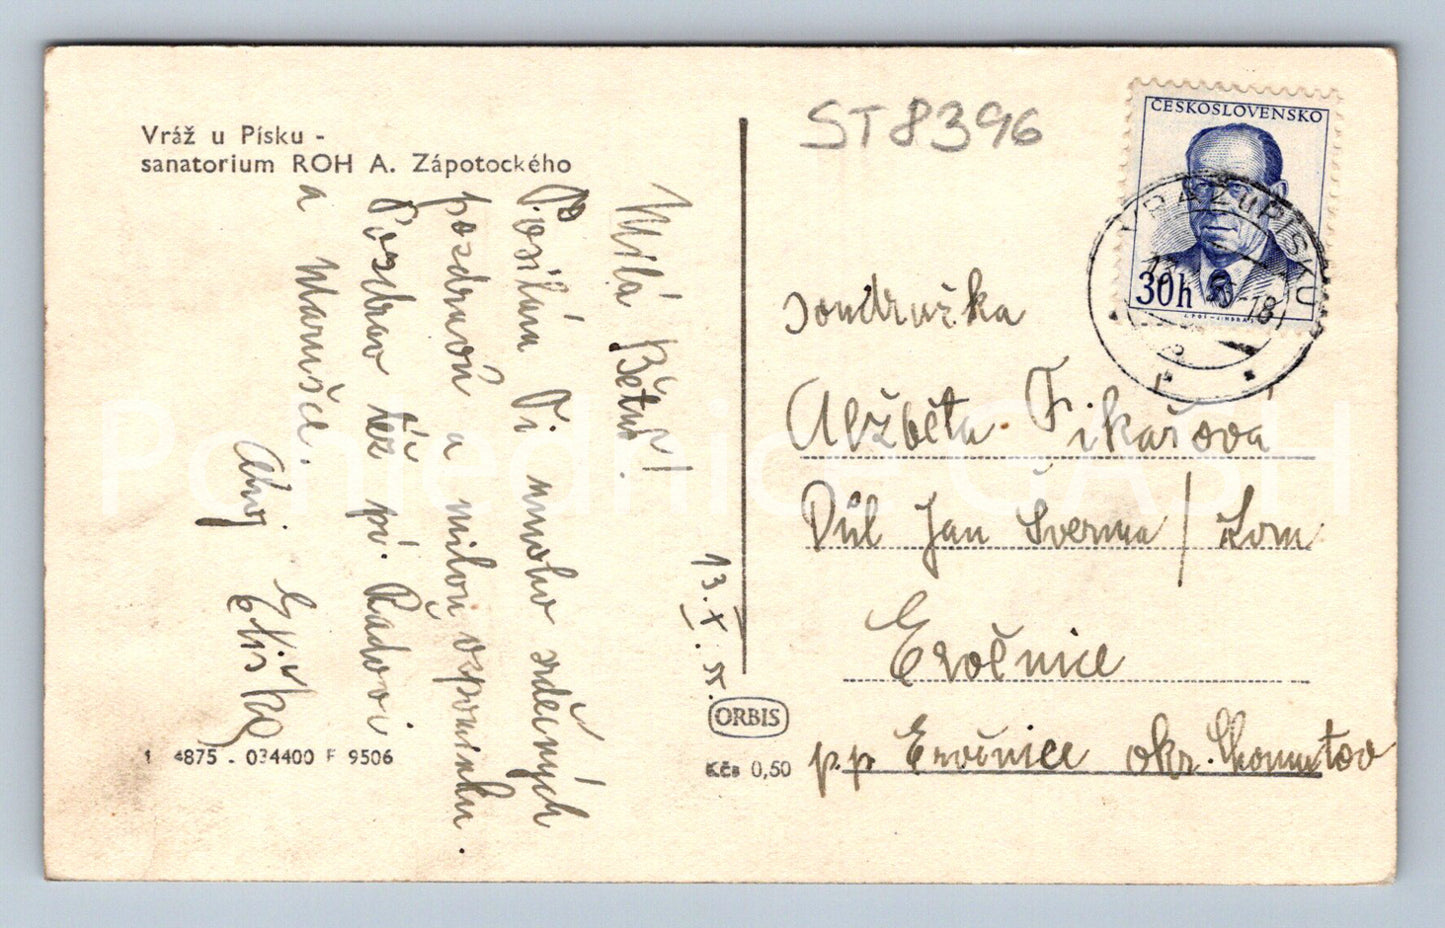 Vráž u Písku -
sanatorium ROH A. Zápotockého
Milá Bětuš!
Posílám Ti mnoho srdečných
pozdravů a milou vzpomínku.
Pozdrav též př. Radovi
a Marušce.
Ahoj
Eliška
13.X.55.
ORBIS
Kčs 0,50
1 4875 - 034400 F 9506
ST8396
ČESKOSLOVENSKO
30h
VRÁŽ u PÍSKU
-18
soudružka
Alžběta Fikařová
Důl Jan Šverma / Lom
Ervěnice
p.p. Ervěnice okr. Chomutov
Pohlednice GASH